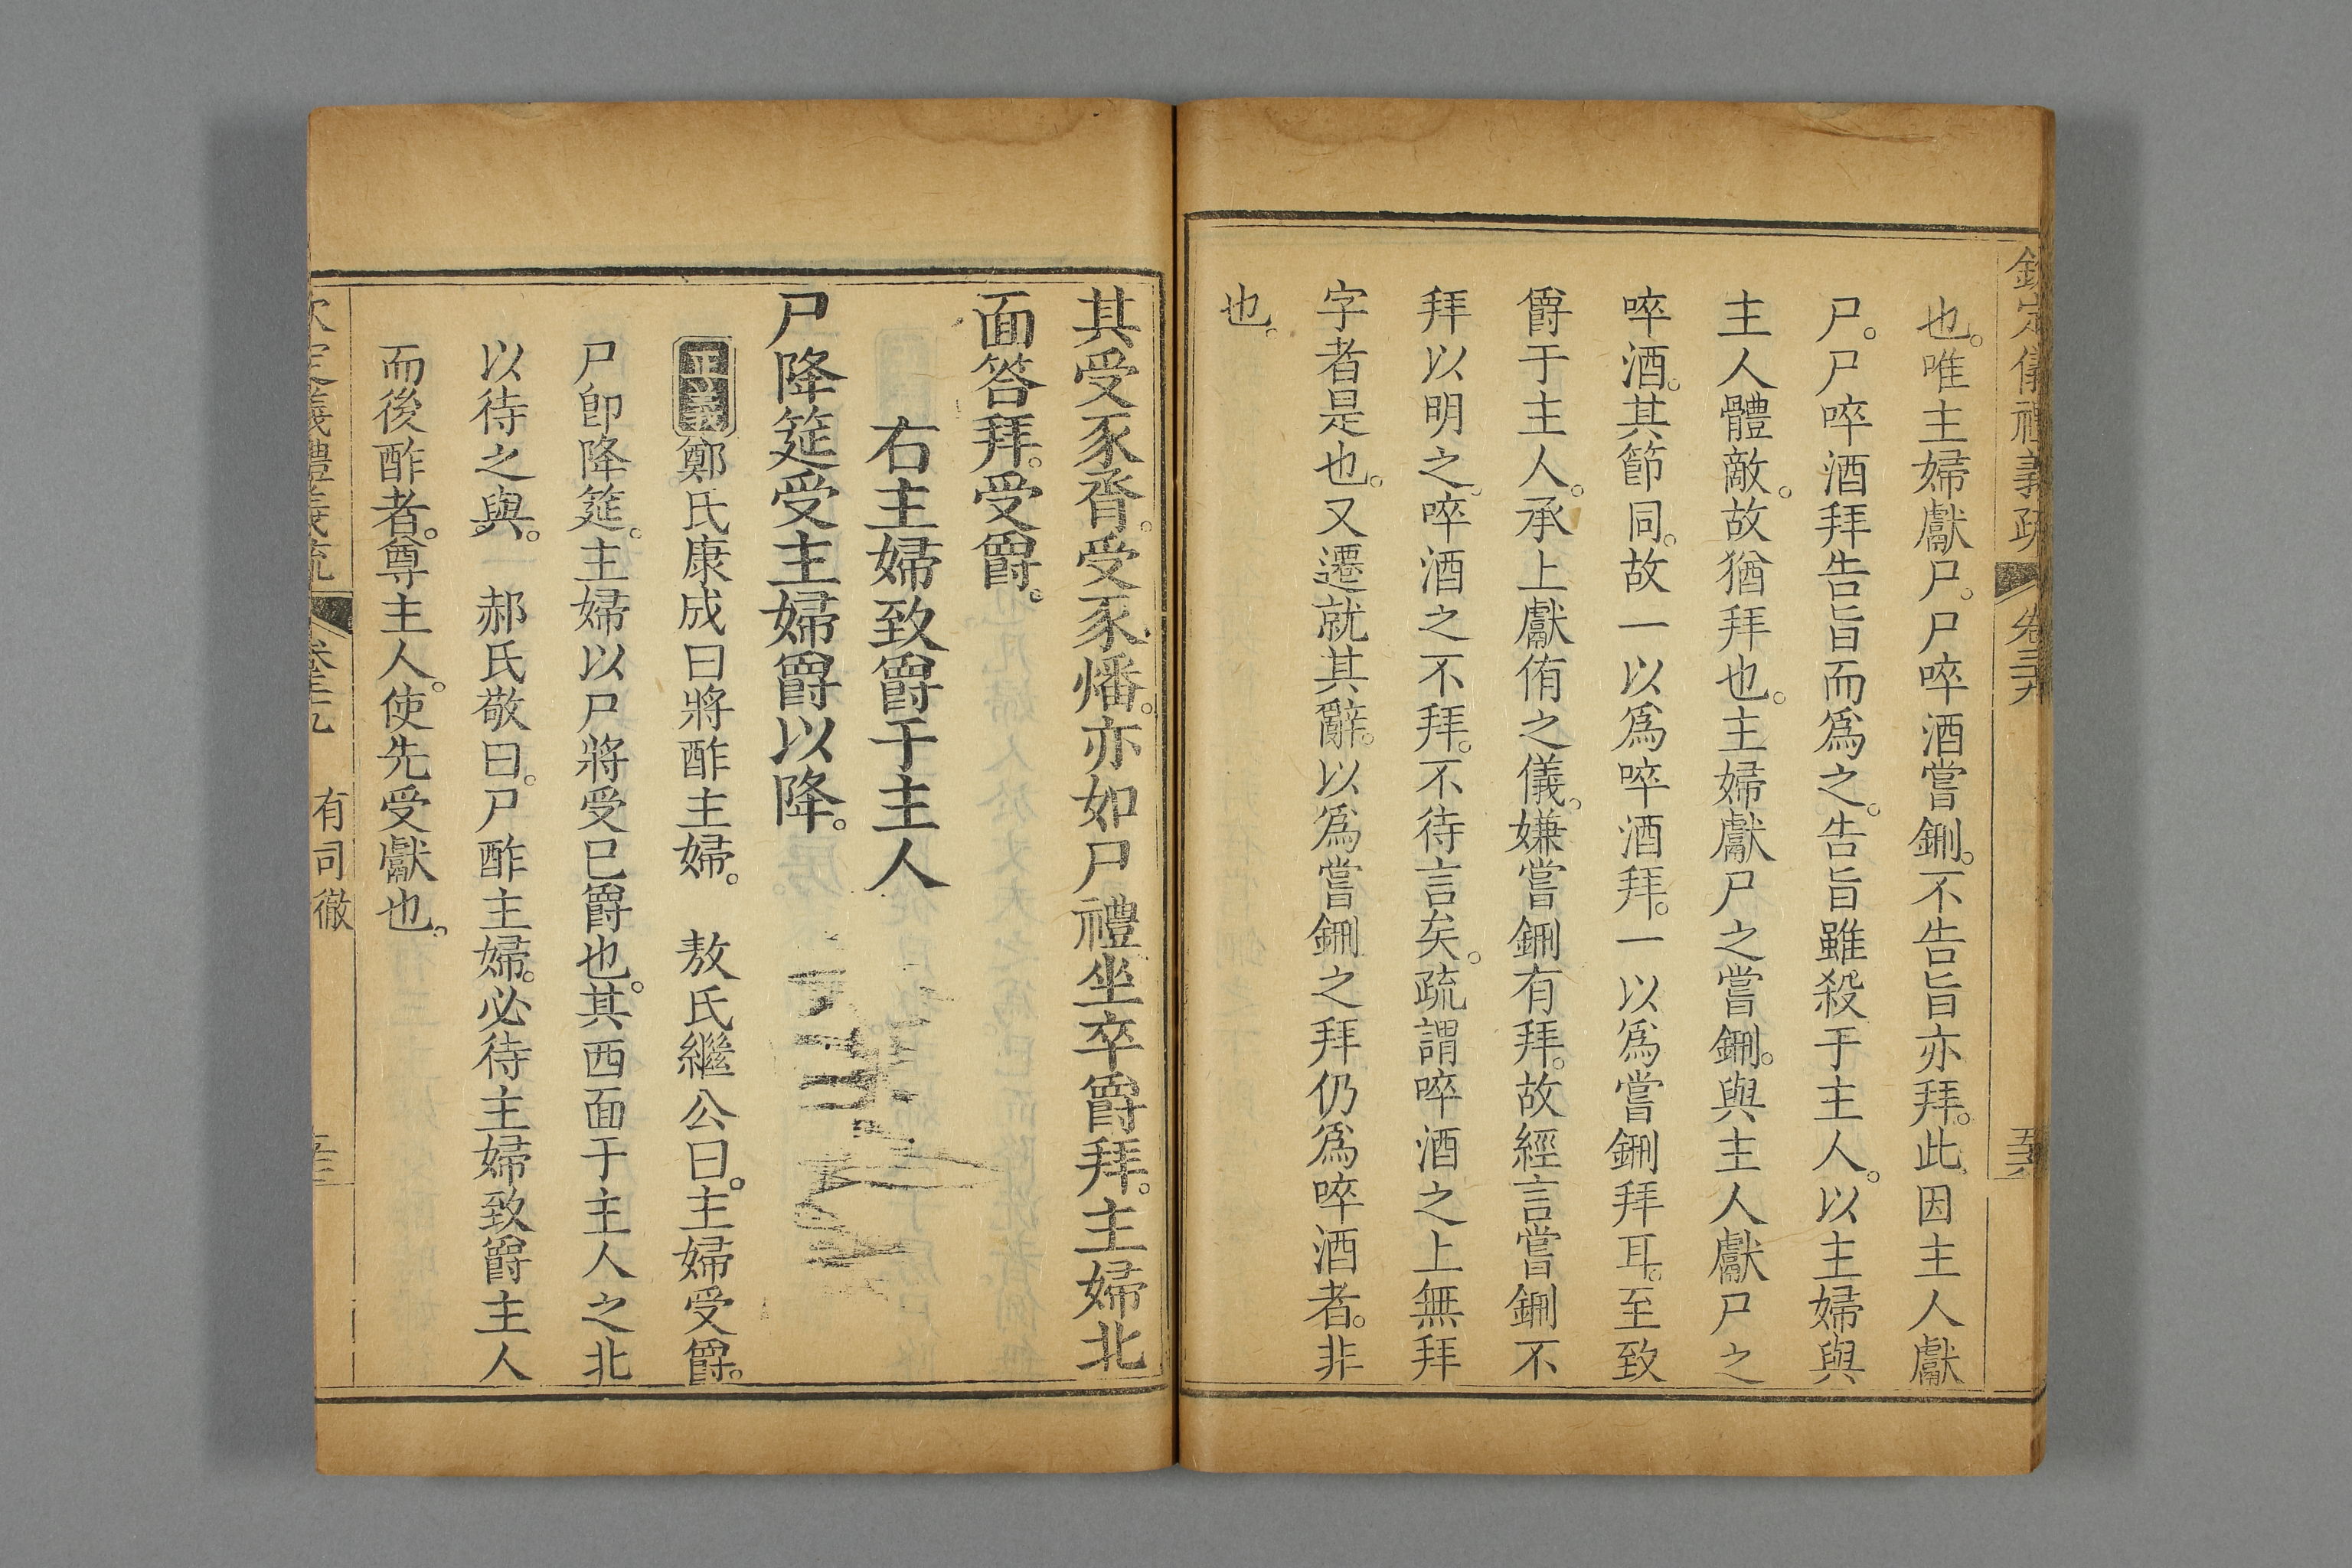 欽定儀禮義疏 卷三十九
也。唯主婦獻尸。尸啐酒嘗鉶。不告旨亦拜。此因主人獻
尸。尸啐酒拜告旨而爲之。告旨雖殺于主人。以主婦與
主人體敵。故猶拜也。主婦獻尸之嘗鉶。與主人獻尸之
啐酒。其節同。故一以爲啐酒拜。一以爲嘗鉶拜耳。至致
爵于主人。承上獻侑之儀。嫌嘗鉶有拜。故經言嘗鉶不
拜以明之。啐酒之不拜。不待言矣。疏謂啐酒之上無拜
字者是也。又遷就其辭。以爲嘗鉶之拜仍爲啐酒者。非
也。
其受豕脀。受豕燔。亦如尸禮坐卒爵拜。主婦北
面答拜。受爵。
右主婦致爵于主人
尸降筵受主婦爵以降。
正義鄭氏康成曰將酢主婦。 敖氏繼公曰。主婦受爵。
尸卽降筵。主婦以尸將受已爵也。其西面于主人之北
以待之與。 郝氏敬曰。尸酢主婦。必待主婦致爵主人
而後酢者。尊主人。使先受獻也。
欽定義禮義疏 卷三十九 有司徹